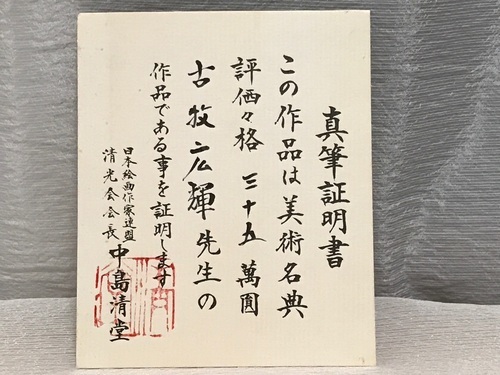 真筆証明書
この作品は美術名典
評価々格 三十五 萬圓
古牧広輝先生の
作品である事を証明します
日本絵画作家連盟
清光会会長 中島清堂